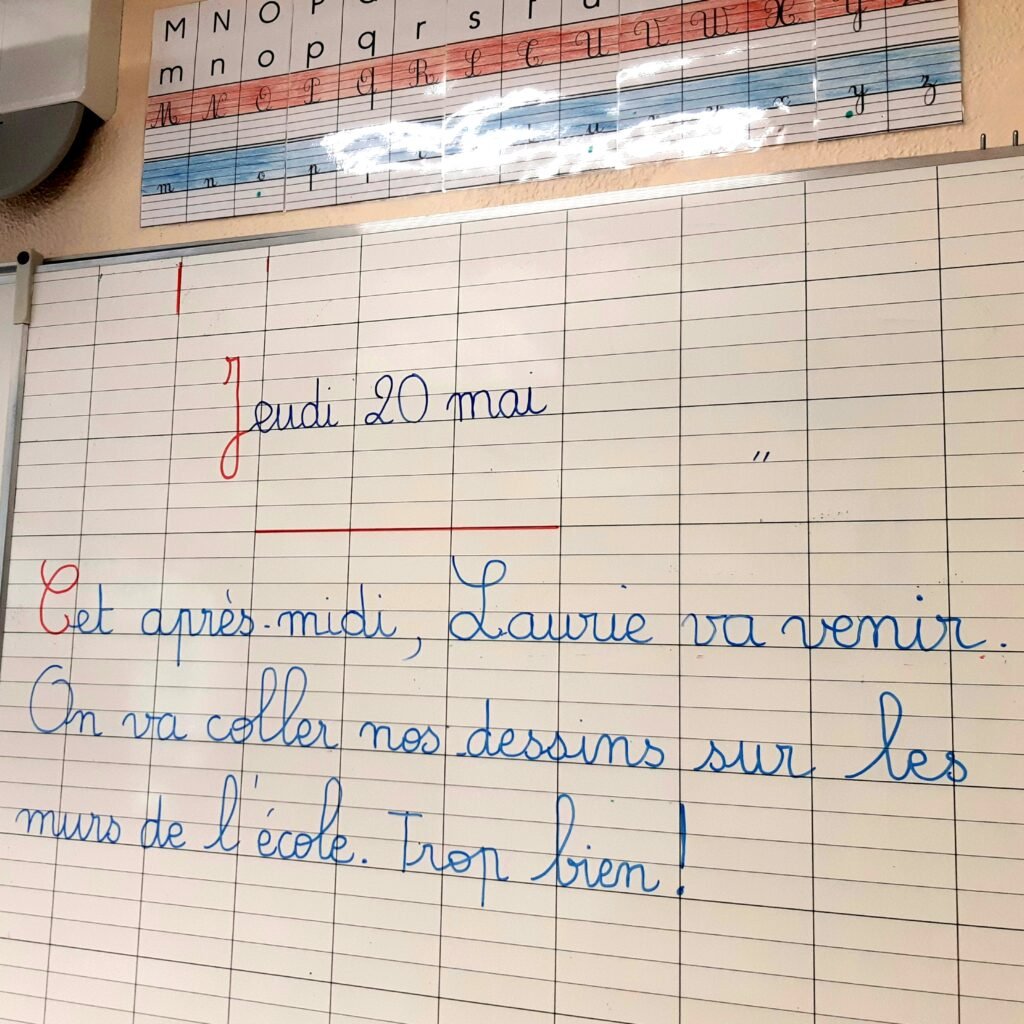 M N O P
m n o p q r s
M N O P Q R S T U V W X Y
m n o p u y z
Jeudi 20 mai
"
Cet après-midi, Laurie va venir.
On va coller nos dessins sur les
murs de l'école. Trop bien !